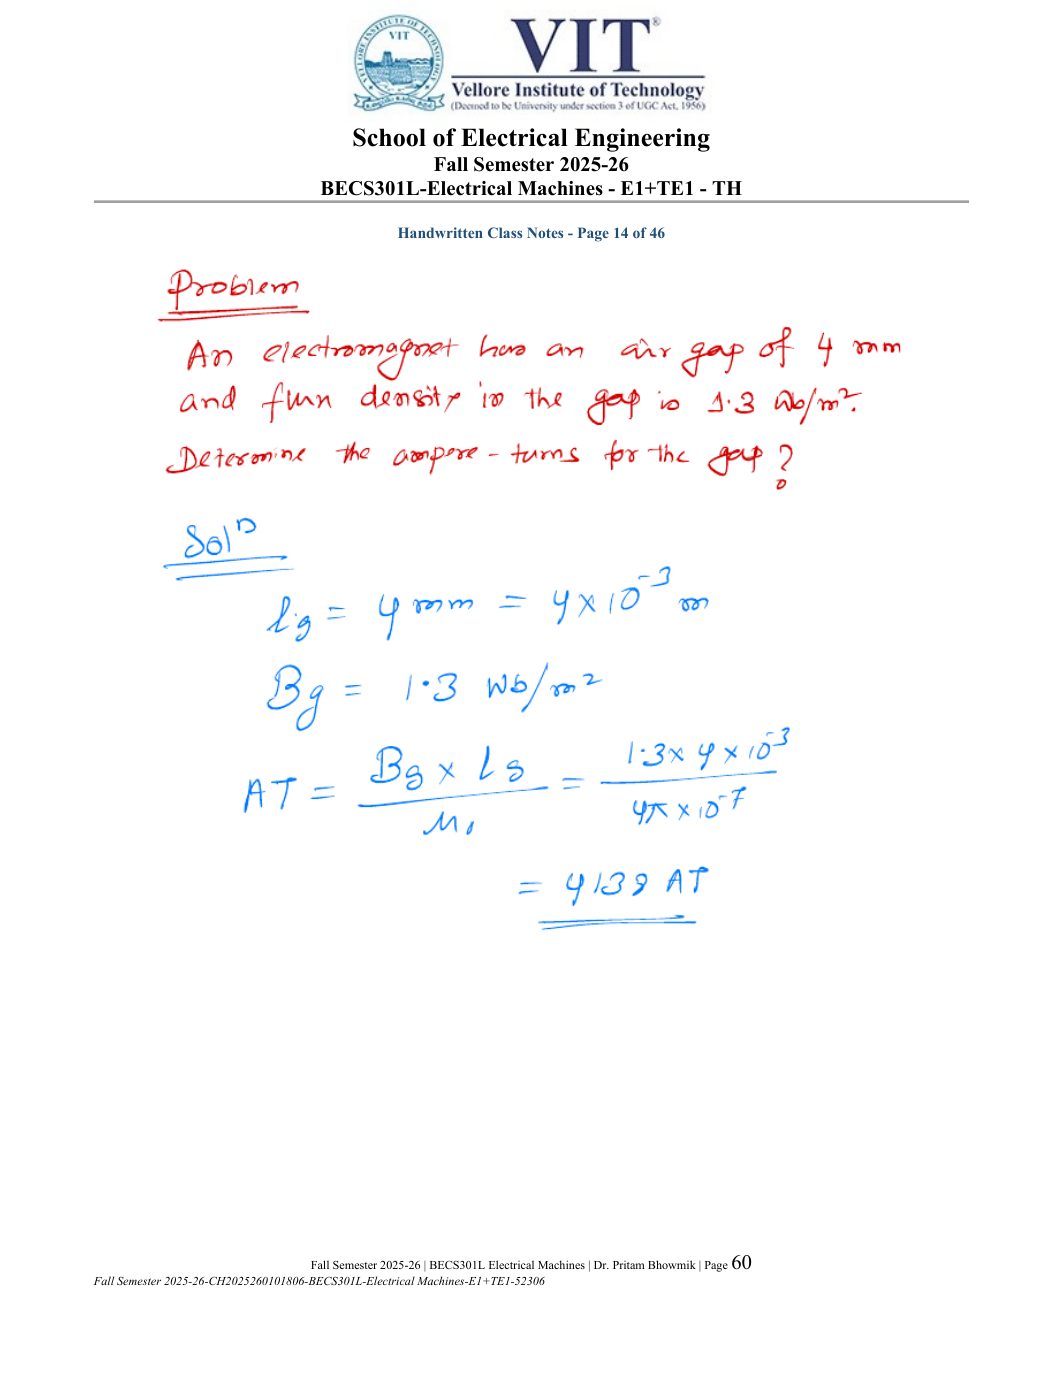 VIT
VIT®
Vellore Institute of Technology
(Deemed to be University under section 3 of UGC Act, 1956)
School of Electrical Engineering
Fall Semester 2025-26
BECS301L-Electrical Machines - E1+TE1 - TH
Handwritten Class Notes - Page 14 of 46
Problem
An electromagnet has an air gap of 4 mm
and flux density in the gap is 1.3 Wb/m².
Determine the ampere-turns for the gap?
Solⁿ
lg = 4 mm = 4 × 10⁻³ m
Bg = 1.3 Wb/m²
AT = Bg × lg / μ₀ = 1.3 × 4 × 10⁻³ / 4π × 10⁻⁷
= 4138 AT
Fall Semester 2025-26 | BECS301L Electrical Machines | Dr. Pritam Bhowmik | Page 60
Fall Semester 2025-26-CH2025260101806-BECS301L-Electrical Machines-E1+TE1-52306